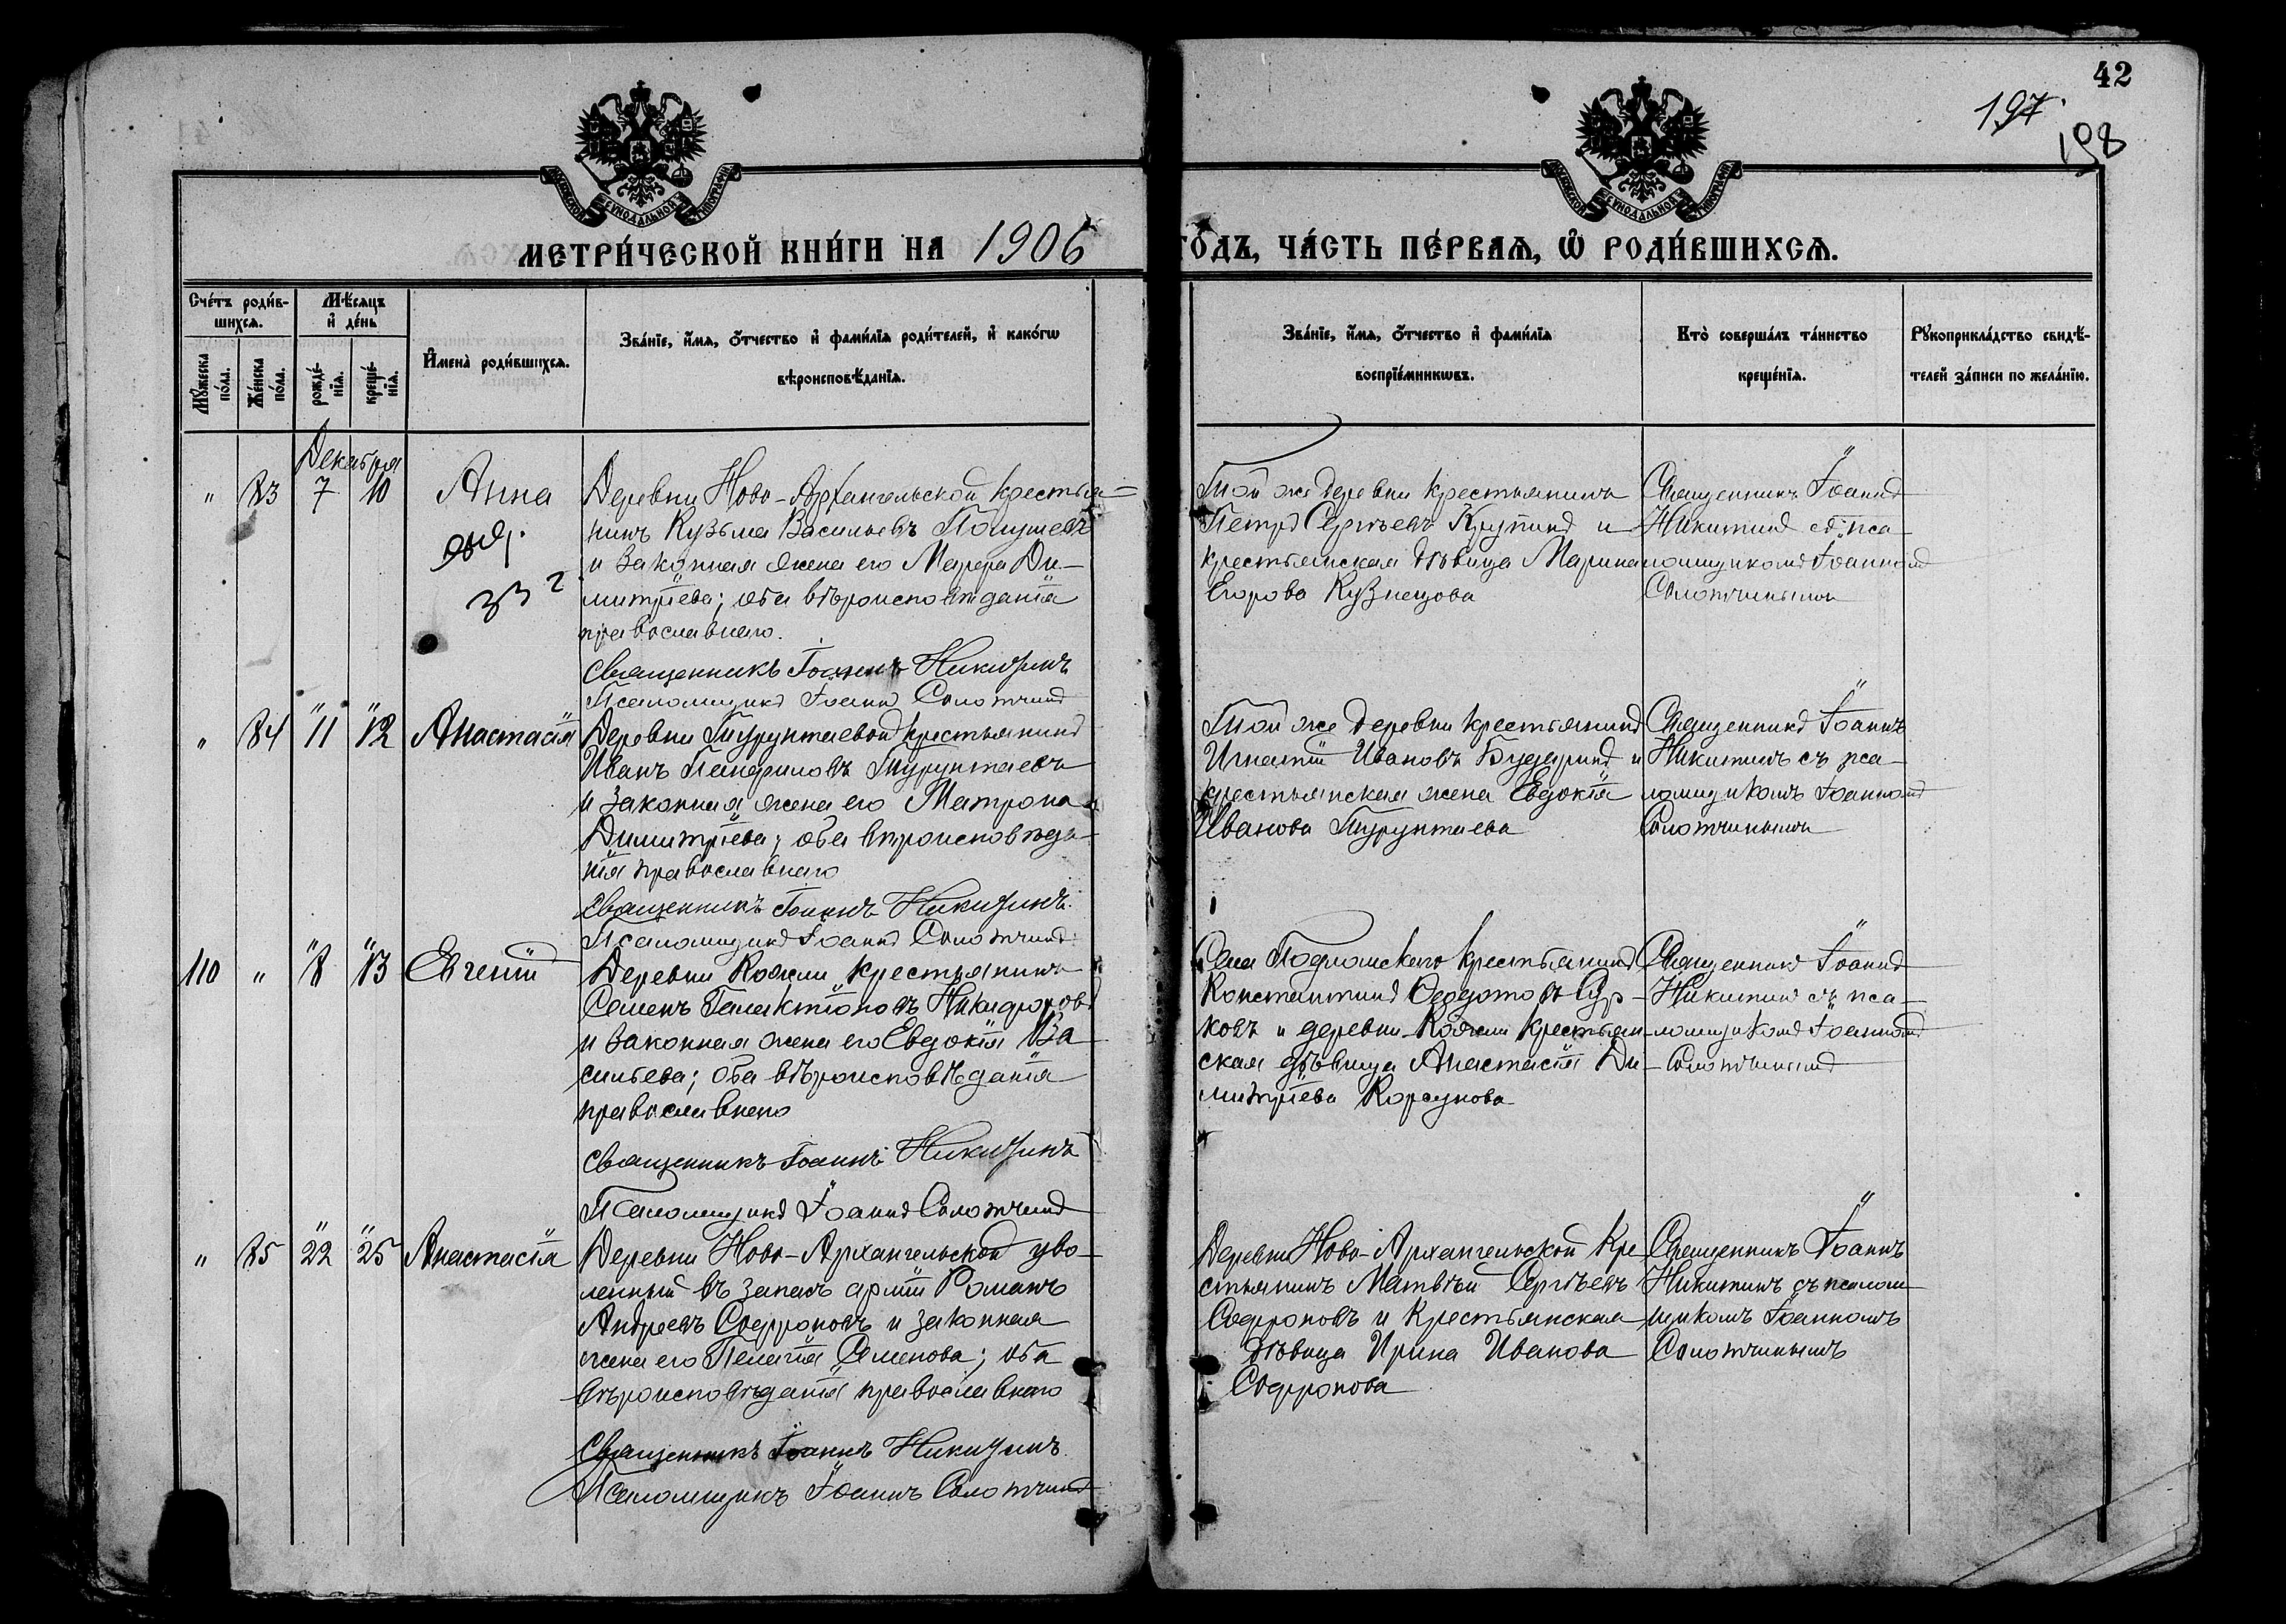 42
197.
198
МЕТРИ́ЧЕСКОЙ КНИ́ГИ НА 1906
ГОДЪ, ЧА́СТЬ ПЕ́РВАЯ, Ѡ҆ РОДИ́ВШИХСЯ.
Сче́тъ роди́в-
шихся.
Мѣ́сяцъ
и҆ де́нь
Мꙋ́жеска
по́ла.
Же́нска
по́ла.
рожде́-
нїѧ.
креще́-
нїѧ.
И҆мена̀ роди́вшихся.
Зва́нїе, и҆́мѧ, ѻ҆́тчество и҆ фами́лїѧ роди́телей, и҆ како́гѡ
вѣроисповѣ́данїѧ.
Зва́нїе, и҆́мѧ, ѻ҆́тчество и҆ фами́лїѧ
воспрїе́мникѡвъ.
Кто̀ соверша́лъ та́инство
креще́нїѧ.
Рꙋкоприкла́дство свидѣ́-
телей за́писи по жела́нїю.
Декабря
" 83 7 10 Анна
выд.
33 г
Деревни Ново-Архангельской крестья-
нинъ Кузьма Васильевъ
и законная жена его Марѳа Ди-
митріева; оба вѣроисповѣданія
православнаго.
Священникъ Іоаннъ Никитинъ
Псаломщикъ Іоаннъ Солотчинъ
Той же деревни крестьянинъ
Петръ Сергѣевъ Крупинъ и
крестьянская дѣвица Марина
Егорова Кузнецова
Священникъ Іоаннъ
Никитинъ съ пса-
ломщикомъ Іоанномъ
Солотчинымъ
" 84 11 12 Анастасія
Деревни Турунтаевой крестьянинъ
Иванъ Панфиловъ Турунтаевъ
и законная жена его Матрона
Димитріева; оба вѣроисповѣда-
нія православнаго
Священникъ Іоаннъ Никитинъ.
Псаломщикъ Іоаннъ Солотчинъ
Той же деревни крестьянинъ
Игнатій Ивановъ и
крестьянская жена Евдокія
Иванова Турунтаева
Священникъ Іоаннъ
Никитинъ съ пса-
ломщикомъ Іоанномъ
Солотчинымъ
110 " " 13 Евгеній
Деревни Кожли крестьянинъ
Семенъ Галактіоновъ Никифоровъ
и законная жена его Евдокія Ва-
сильева; оба вѣроисповѣданія
православнаго
Священникъ Іоаннъ Никитинъ
Псаломщикъ Іоаннъ Солотчинъ
Села крестьянинъ
Константинъ Ѳедотовъ Сур-
ковъ и деревни Кожли крестьян-
ская дѣвица Анастасія Ди-
митріева Корсунова
Священникъ Іоаннъ
Никитинъ съ пса-
ломщикомъ Іоанномъ
Солотчинымъ
" 85 22 25 Анастасія
Деревни Ново-Архангельской уво-
ленный въ запасъ арміи Романъ
Андреевъ Софроновъ и законная
жена его Пелагія Семенова; оба
вѣроисповѣданія православнаго
Священникъ Іоаннъ Никитинъ
Псаломщикъ Іоаннъ Солотчинъ
Деревни Ново-Архангельской кре-
стьянинъ Матвѣй Сергѣевъ
Софроновъ и крестьянская
дѣвица Ирина Иванова
Софронова
Священникъ Іоаннъ
Никитинъ съ псалом-
щикомъ Іоанномъ
Солотчинымъ